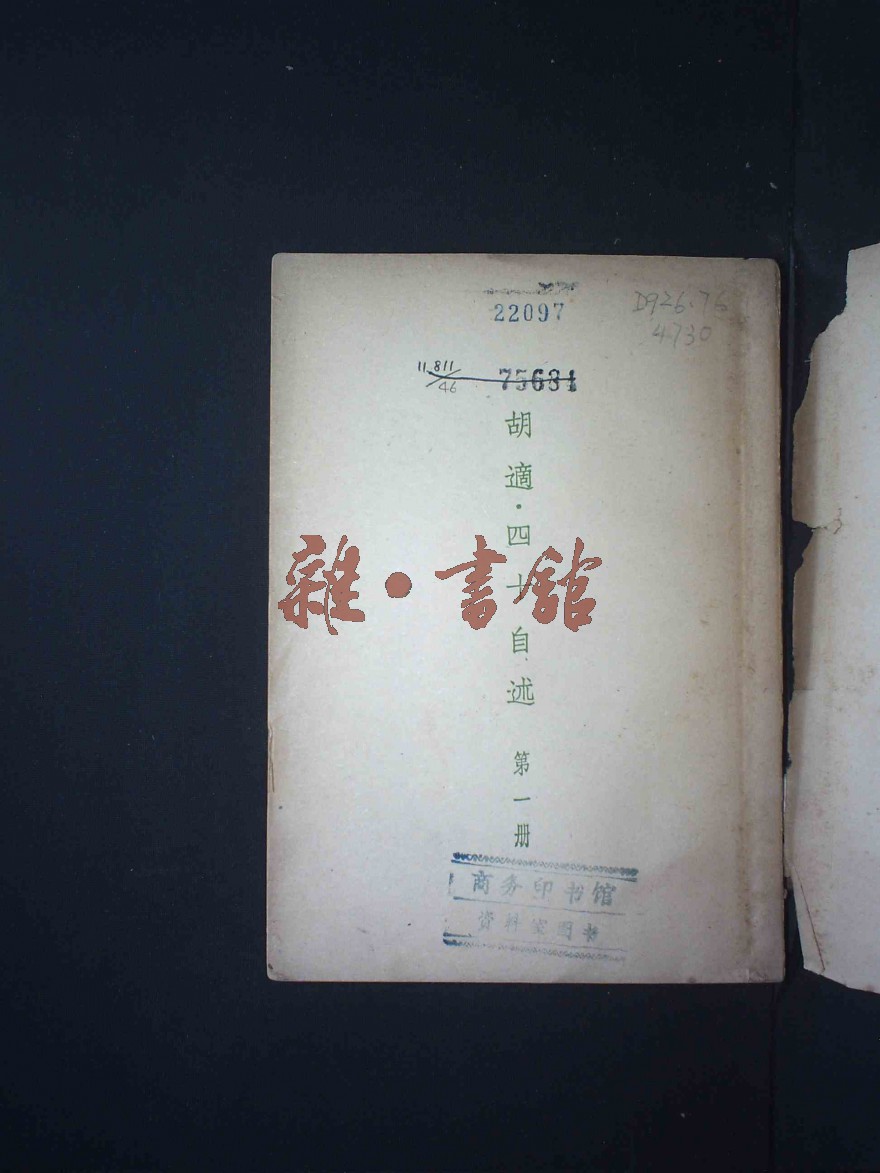 22097
D926.76
4730
11.811
46
75631
胡適·四十自述
第一册
雜·書館
商务印书馆
资料室图书